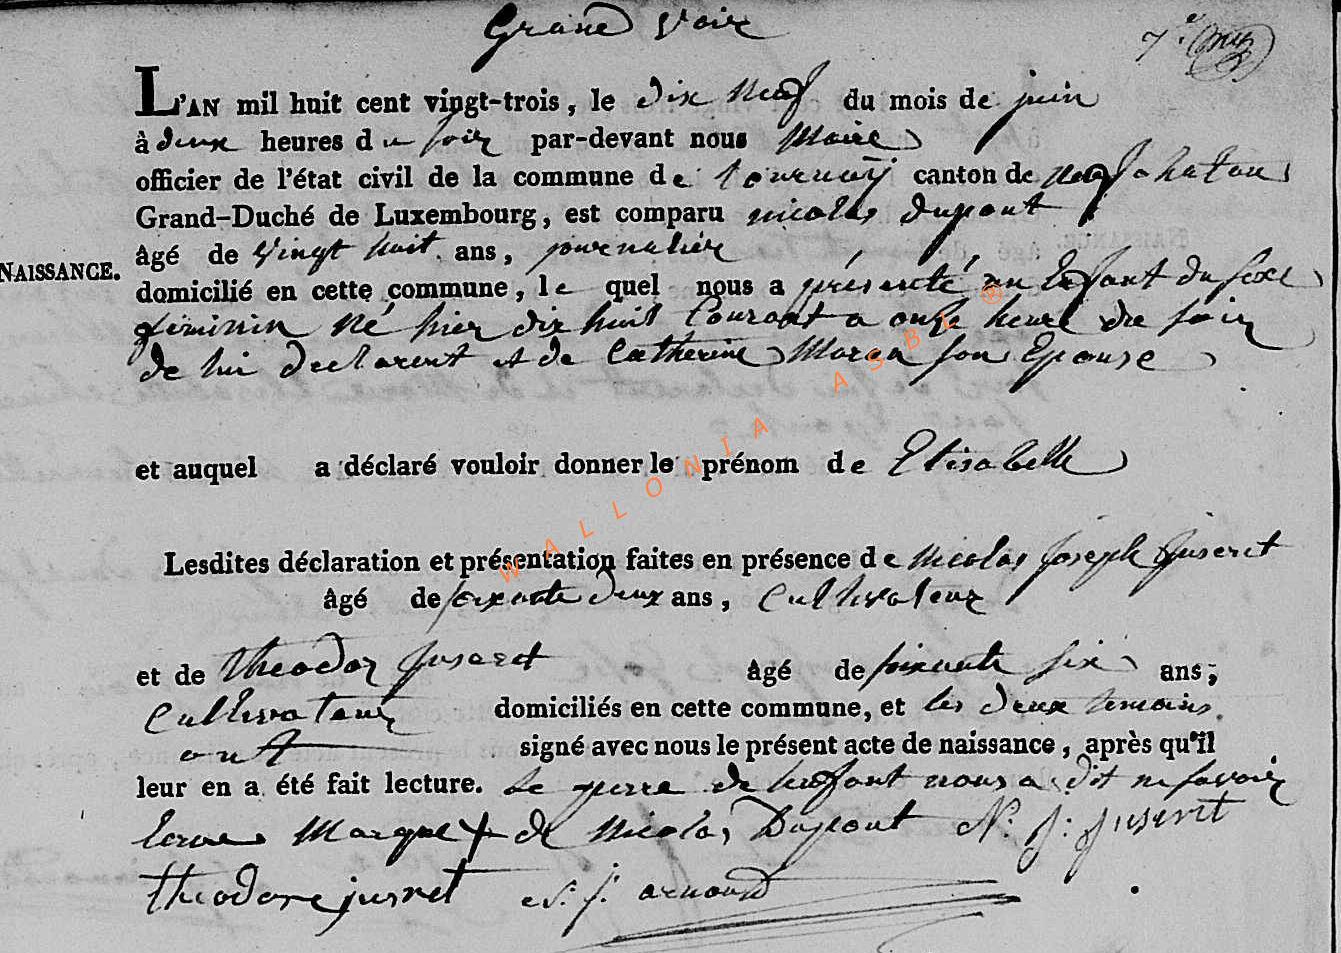 Grand voir
7.e
L'AN mil huit cent vingt-trois, le dix neuf du mois de juin
à deux heures du soir par-devant nous Maire
officier de l'état civil de la commune de tournay canton de neufchateau
Grand-Duché de Luxembourg, est comparu nicolas dupont
âgé de vingt huit ans, journalier
NAISSANCE.
domicilié en cette commune, le quel nous a présenté un Enfant du sexe
feminin né hier dix huit Courant a onze heure du soir
de lui declarent et de Catherine Marga son Epouse
et auquel a déclaré vouloir donner le prénom de Elisabelle
Lesdites déclaration et présentation faites en présence de Nicolas joseph juseret
âgé de soixante deux ans, Cultivateur
et de theodor juseret âgé de soixante six ans,
Cultivateur domiciliés en cette commune, et les deux temoins
ont signé avec nous le présent acte de naissance, après qu'il
leur en a été fait lecture. Le perre de lenfant nous a dit ne savoir
Marque + de Nicolas Dupont N. j: juseret
theodore jusret N. j. arnould
WALLONIA ASBL ®